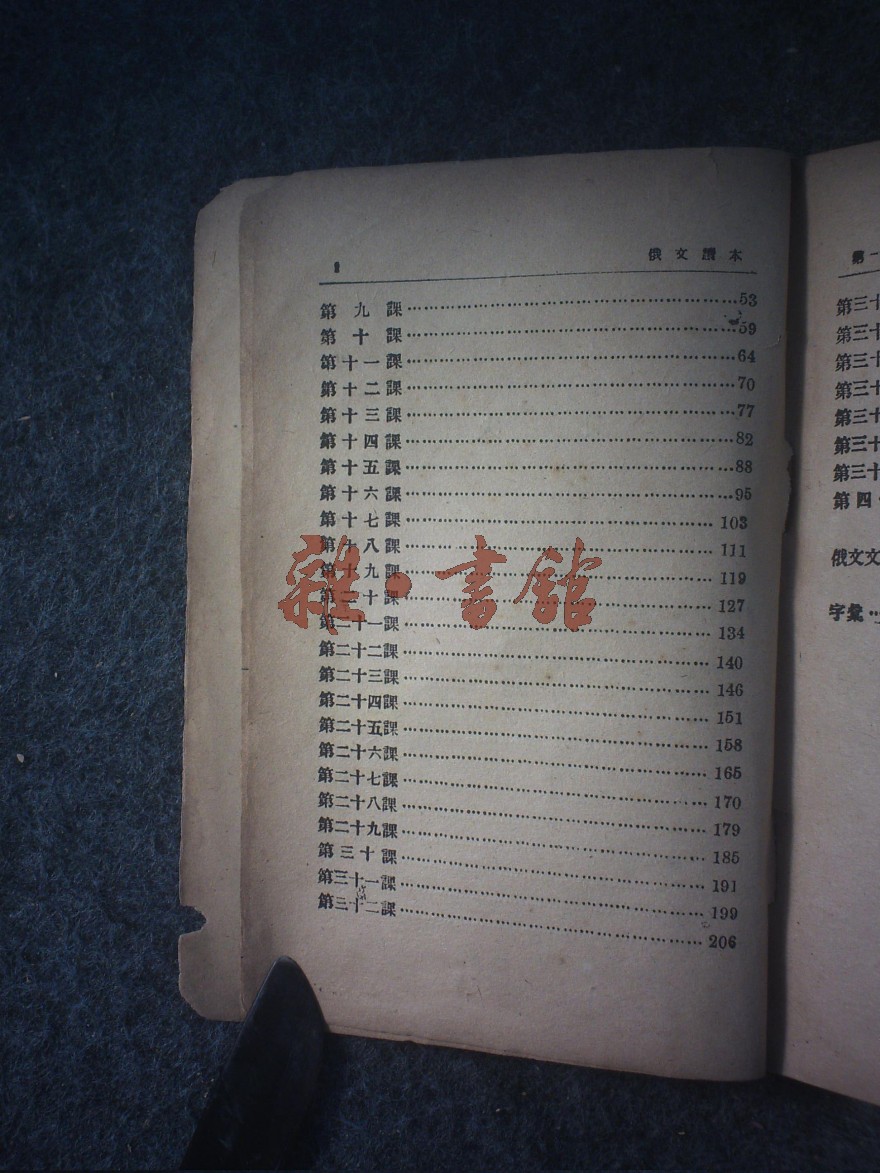 俄文讀本
第九課……53
第十課……59
第十一課……64
第十二課……70
第十三課……77
第十四課……82
第十五課……88
第十六課……95
第十七課……103
第十八課……111
第十九課……119
第二十課……127
第二十一課……134
第二十二課……140
第二十三課……146
第二十四課……151
第二十五課……158
第二十六課……165
第二十七課……170
第二十八課……179
第二十九課……185
第三十課……191
第三十一課……199
第三十二課……206
雜·書館
第三十
第三十
第三十
第三十
第三十
第三十
第三十
第四
俄文文
字彙…